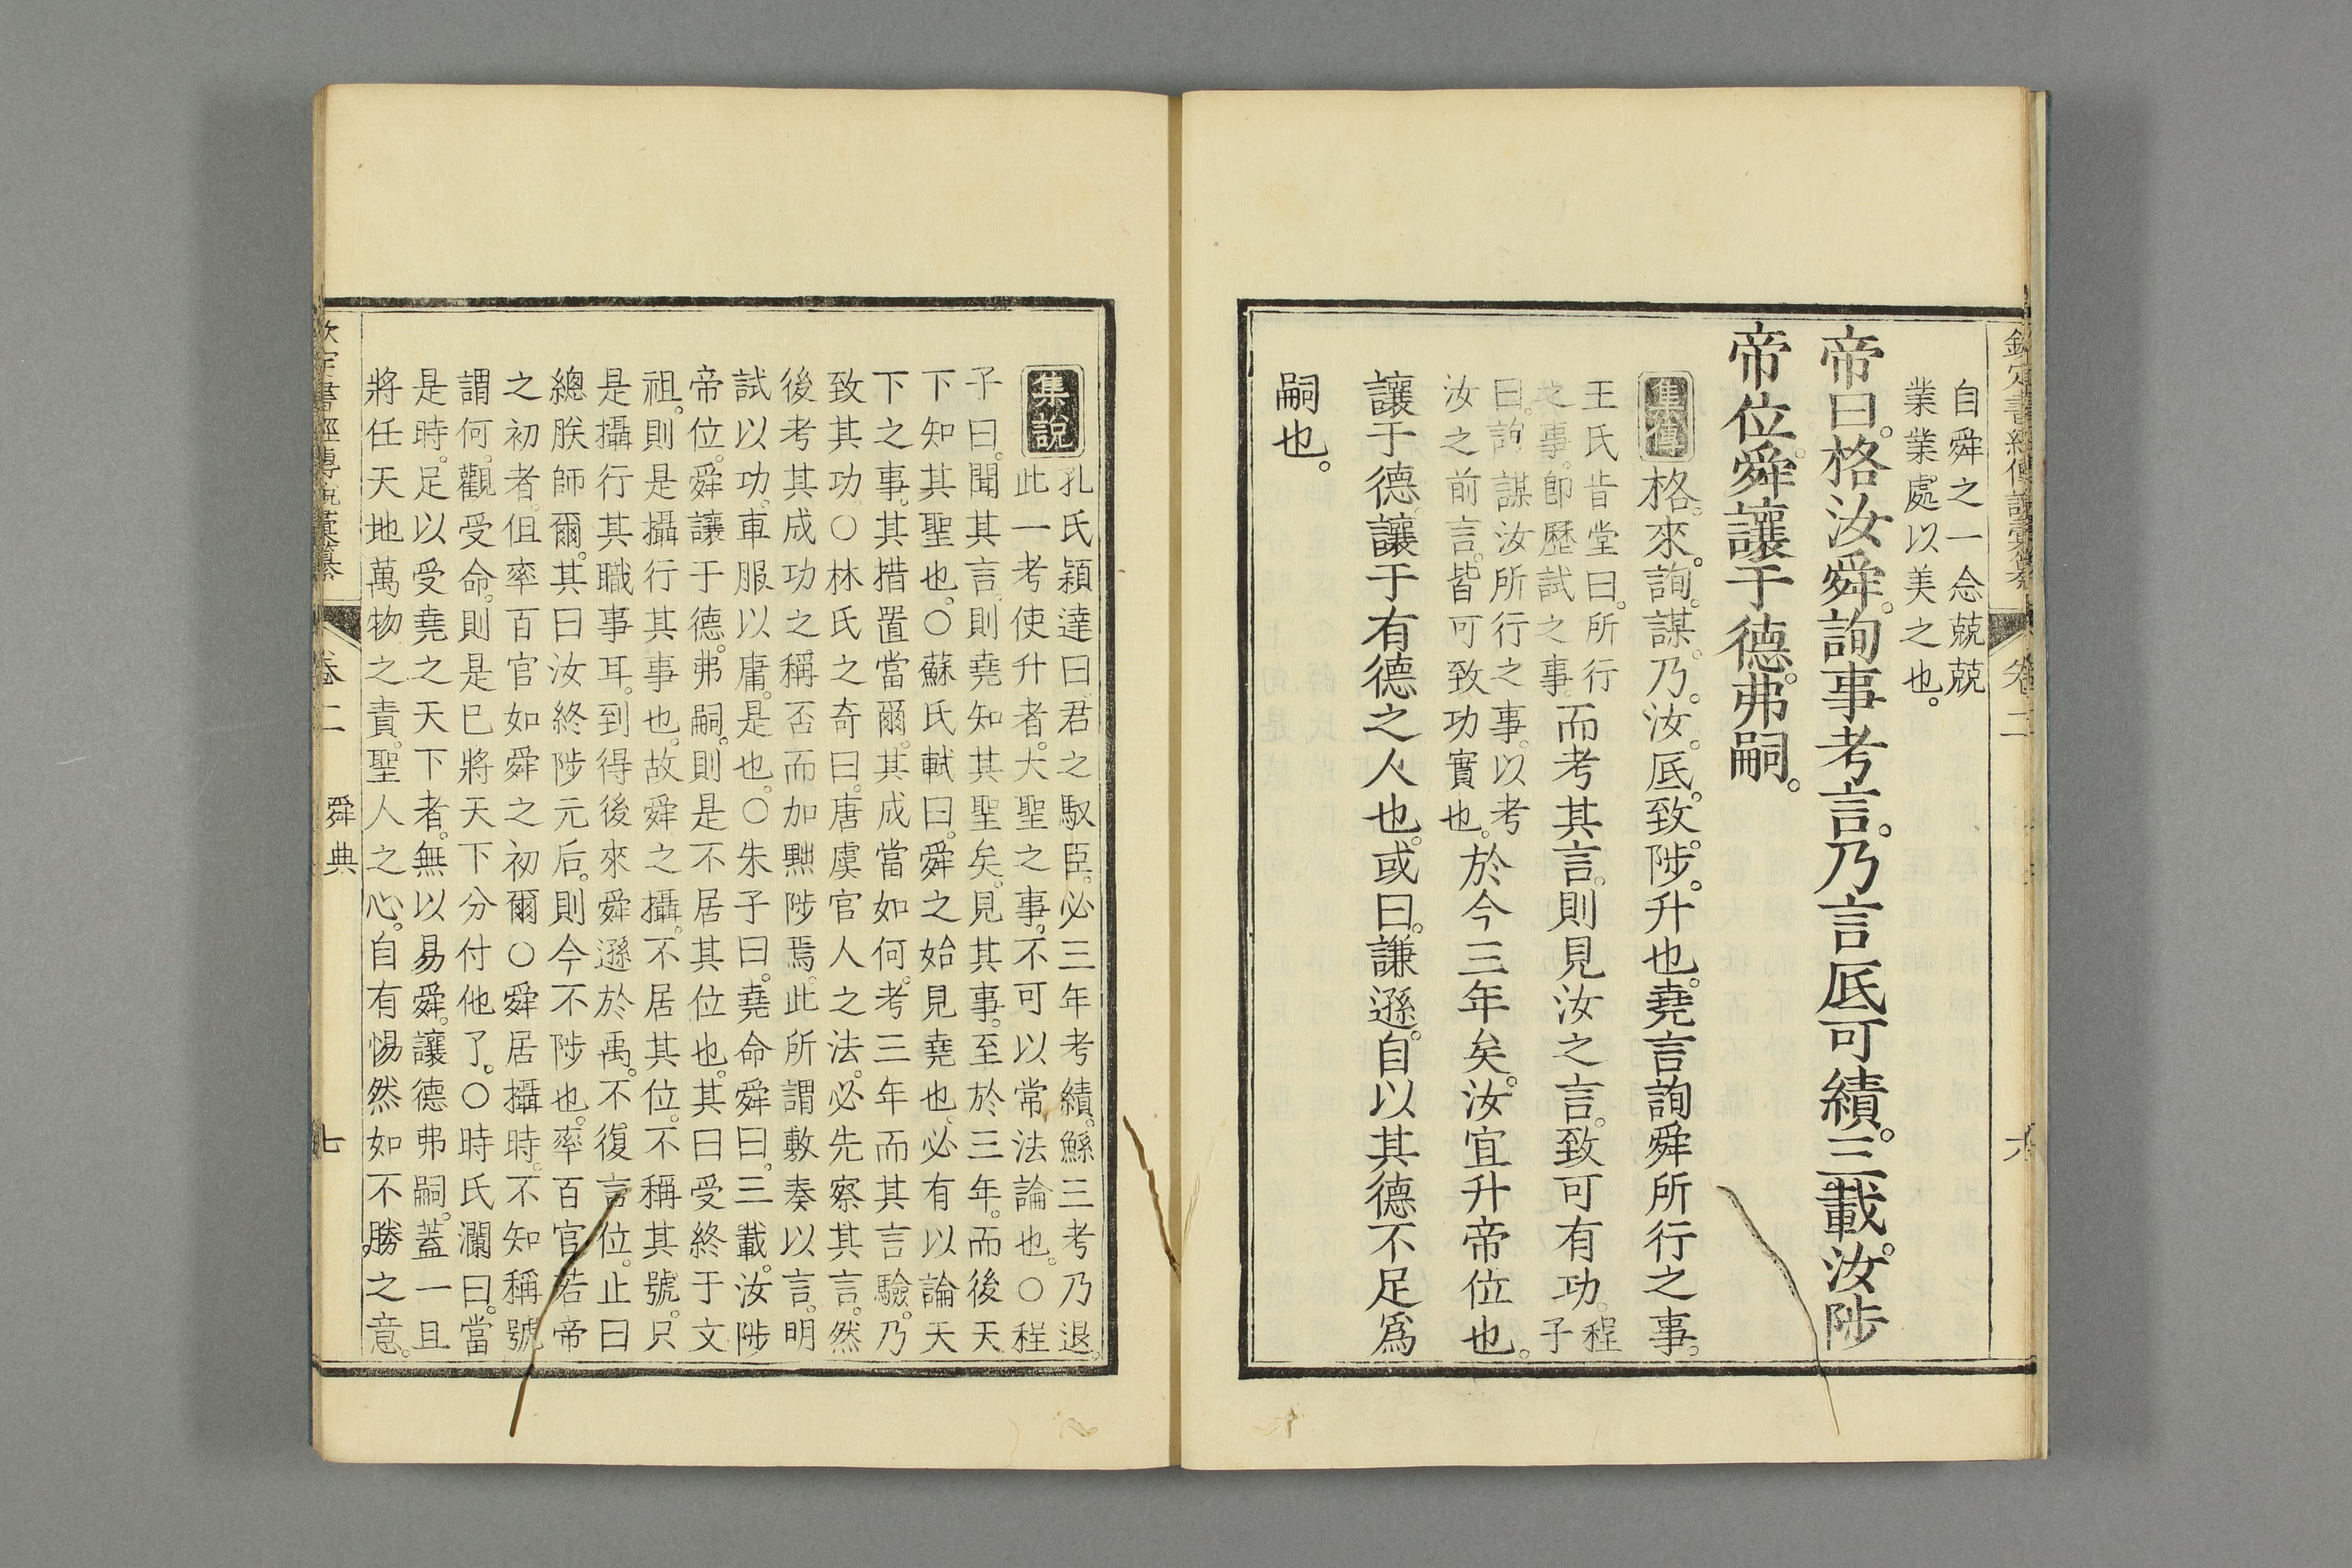 自舜之一念兢兢
業業處以美之也。
帝曰。格汝舜。詢事考言。乃言厎可績。三載。汝陟
帝位。舜讓于德。弗嗣。
集傳
格。來。詢。謀。乃。汝。厎。致。陟。升也。堯言詢舜所行之事。
王氏肯堂曰。所行
之事。卽歷試之事。
而考其言。則見汝之言。致可有功。
程
子
曰。詢。謀汝所行之事。以考
汝之前言。皆可致功實也。
於今三年矣。汝宜升帝位也。
讓于德。讓于有德之人也。或曰。謙遜。自以其德不足爲
嗣也。
欽定書經傳說彙纂
卷二
六
集說
孔氏穎達曰。君之馭臣。必三年考績。鯀三考乃退。
此一考使升者。大聖之事。不可以常法論也。○程
子曰。聞其言。則堯知其聖矣。見其事。至於三年。而後天
下知其聖也。○蘇氏軾曰。舜之始見堯也。必有以論天
下之事。其措置當爾。其成當如何。考三年而其言驗。乃
致其功。○林氏之奇曰。唐虞官人之法。必先察其言。然
後考其成功之稱否而加黜陟焉。此所謂敷奏以言。明
試以功。車服以庸。是也。○朱子曰。堯命舜曰。三載。汝陟
帝位。舜讓于德。弗嗣。則是不居其位也。其曰受終于文
祖。則是攝行其事也。故舜之攝。不居其位。不稱其號。只
是攝行其職事耳。到得後來舜遜於禹。不復言位。止曰
總朕師爾。其曰汝終陟元后。則今不陟也。率百官若帝
之初者。但率百官如舜之初爾○舜居攝時。不知稱號
謂何。觀受命。則是巳將天下分付他了。○時氏瀾曰。當
是時。足以受堯之天下者。無以易舜。讓德弗嗣。蓋一旦
將任天地萬物之責。聖人之心。自有惕然如不勝之意。
欽定書經傳說彙纂
卷二
舜典
七